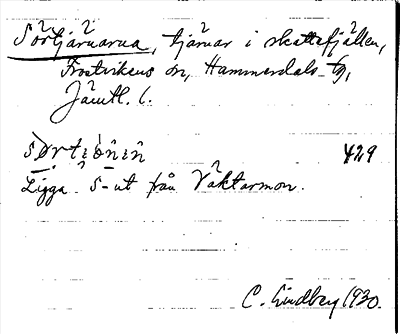 Sörtjärnarna, tjärnar i skattefjällen,
Frostvikens sn, Hammerdals tg,
Jämtl. l.
sørtiønen 429
Ligga S-ut från Väktarmon.
C. Lindberg 1930.